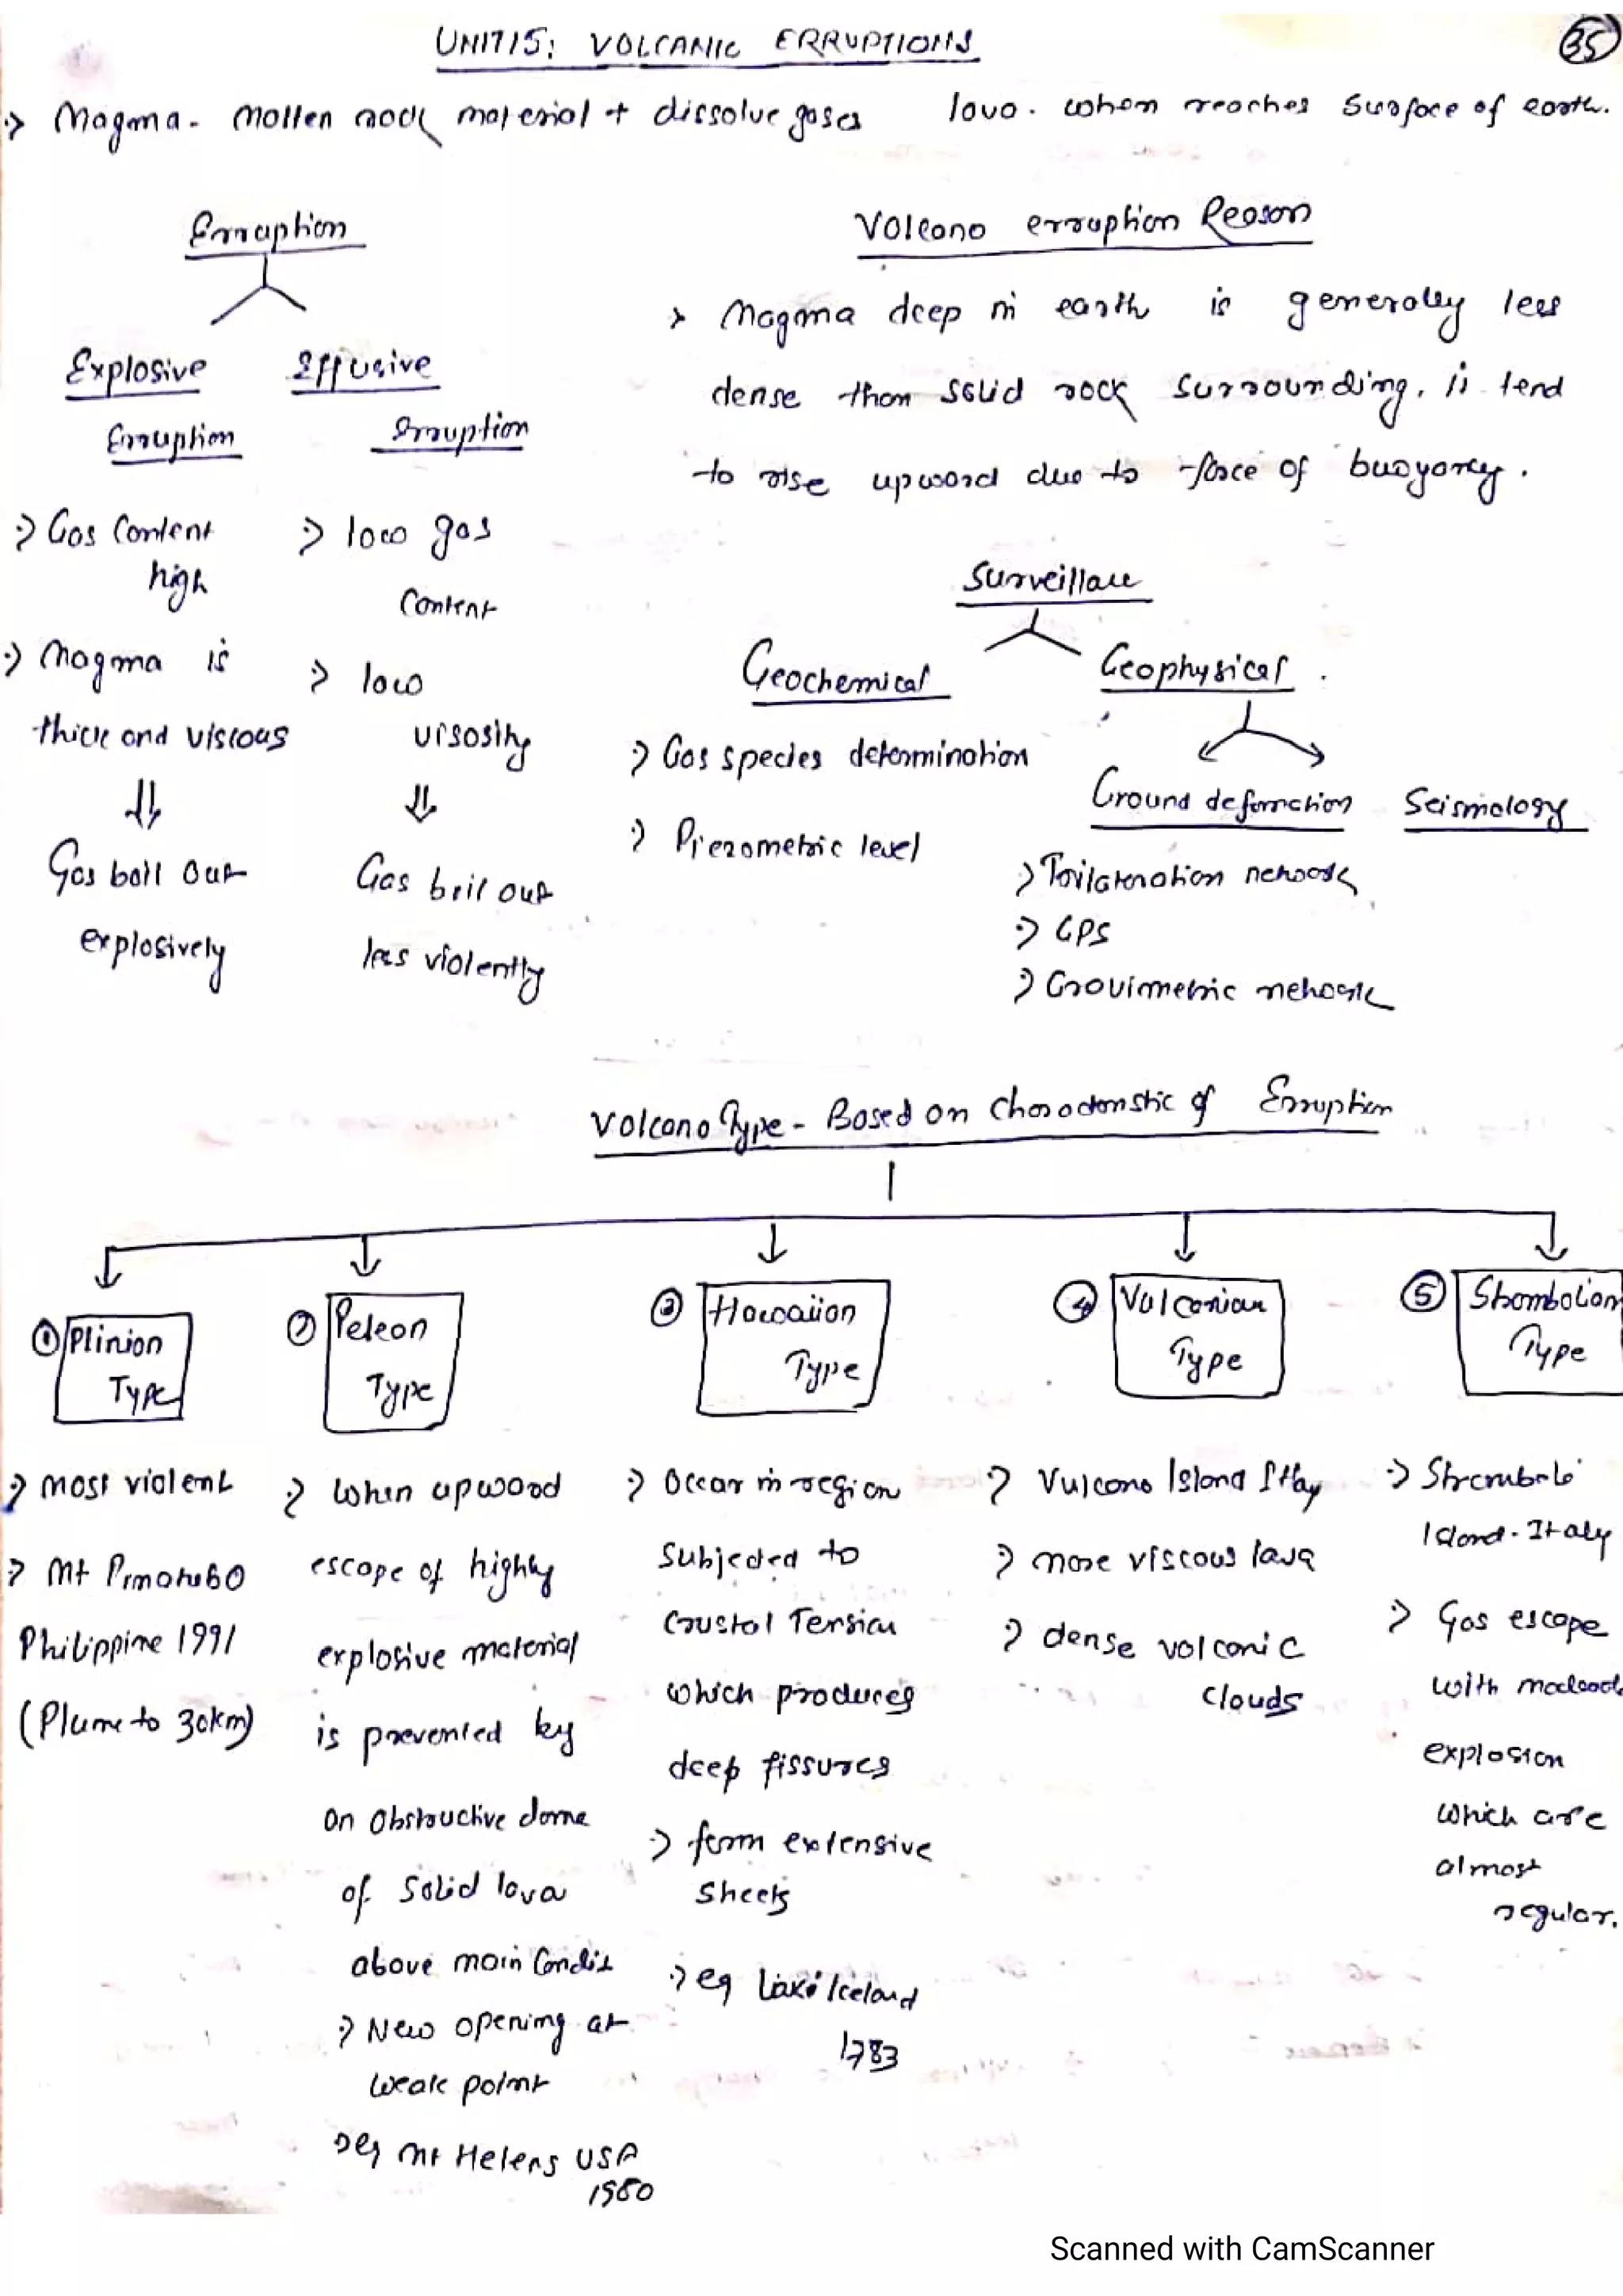 UNIT 15: VOLCANIC ERRUPTIONS
35
Magma - Molten rock material + dissolve gases lava. when reaches Surface of earth.
Erruption
Explosive Erruption
Gas Content
high
Magma is
thick and viscous
Gas boil out
explosively
Effusive
Erruption
low gas
Content
low
visosity
Gas boil out
less violently
Volcano erruption Reason
Magma deep in earth is generally less
dense than solid rock surrounding, it tend
to rise upward due to force of buoyancy.
Surveillace
Geochemical
Gas species determination
Piezometric level
Geophysical.
Ground deformation
Trilateration network
GPS
Gravimetric network
Seismology
Volcano Type - Based on Characterstic of Erruption
① Plinian
Type
most violent
Mt Pinatubo
Philippine 1991
(Plume to 30km)
② Pelean
Type
When upward
escape of highly
explosive material
is prevented by
an obstructive dome
of Solid lava
above main Conduit
New opening at
weak point
eg Mt Helens USA
1980
③ Hawaiian
Type
Occur in region
Subjected to
Crustal Tension
which produces
deep fissures
form extensive
sheets
eg Laki Iceland
1783
④ Vulcanian
Type
Vulcano Island Itly
more viscous lava
dense volcanic
clouds
⑤ Strombolian
Type
Strombolo
Island - Italy
Gas escape
with
explosion
which are
almost
regular.
Scanned with CamScanner